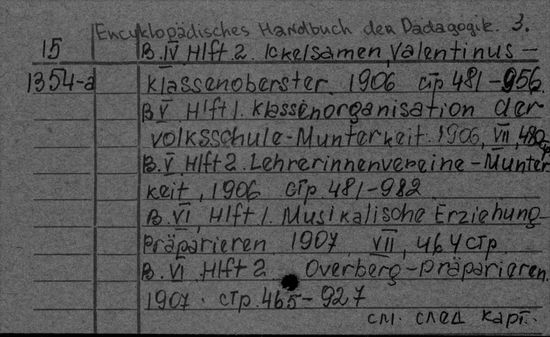 Encyklopädisches Handbuch der Pädagogik. 3.
15 B. IV Hlft 2. Ickelsamen, Valentinus –
1354-a Klassenoberster. 1906 стр 481–956.
B. V Hlft 1. Klassenorganisation der
Volksschule-Munterkeit. 1906, VII, 480
B. V, Hlft 2. Lehrerinnenvereine-Munter
keit, 1906 стр 481–982
B. VI, Hlft 1. Musikalische Erziehung-
Präparieren. 1907 VII, 464 стр
B. VI Hlft 2 Overberg-Präparieren.
1907. стр. 465–927
см. след карт.